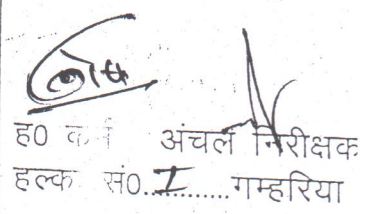 ह0 कर्म अंचल निरीक्षक
हल्का सं0..I..........गम्हरिया